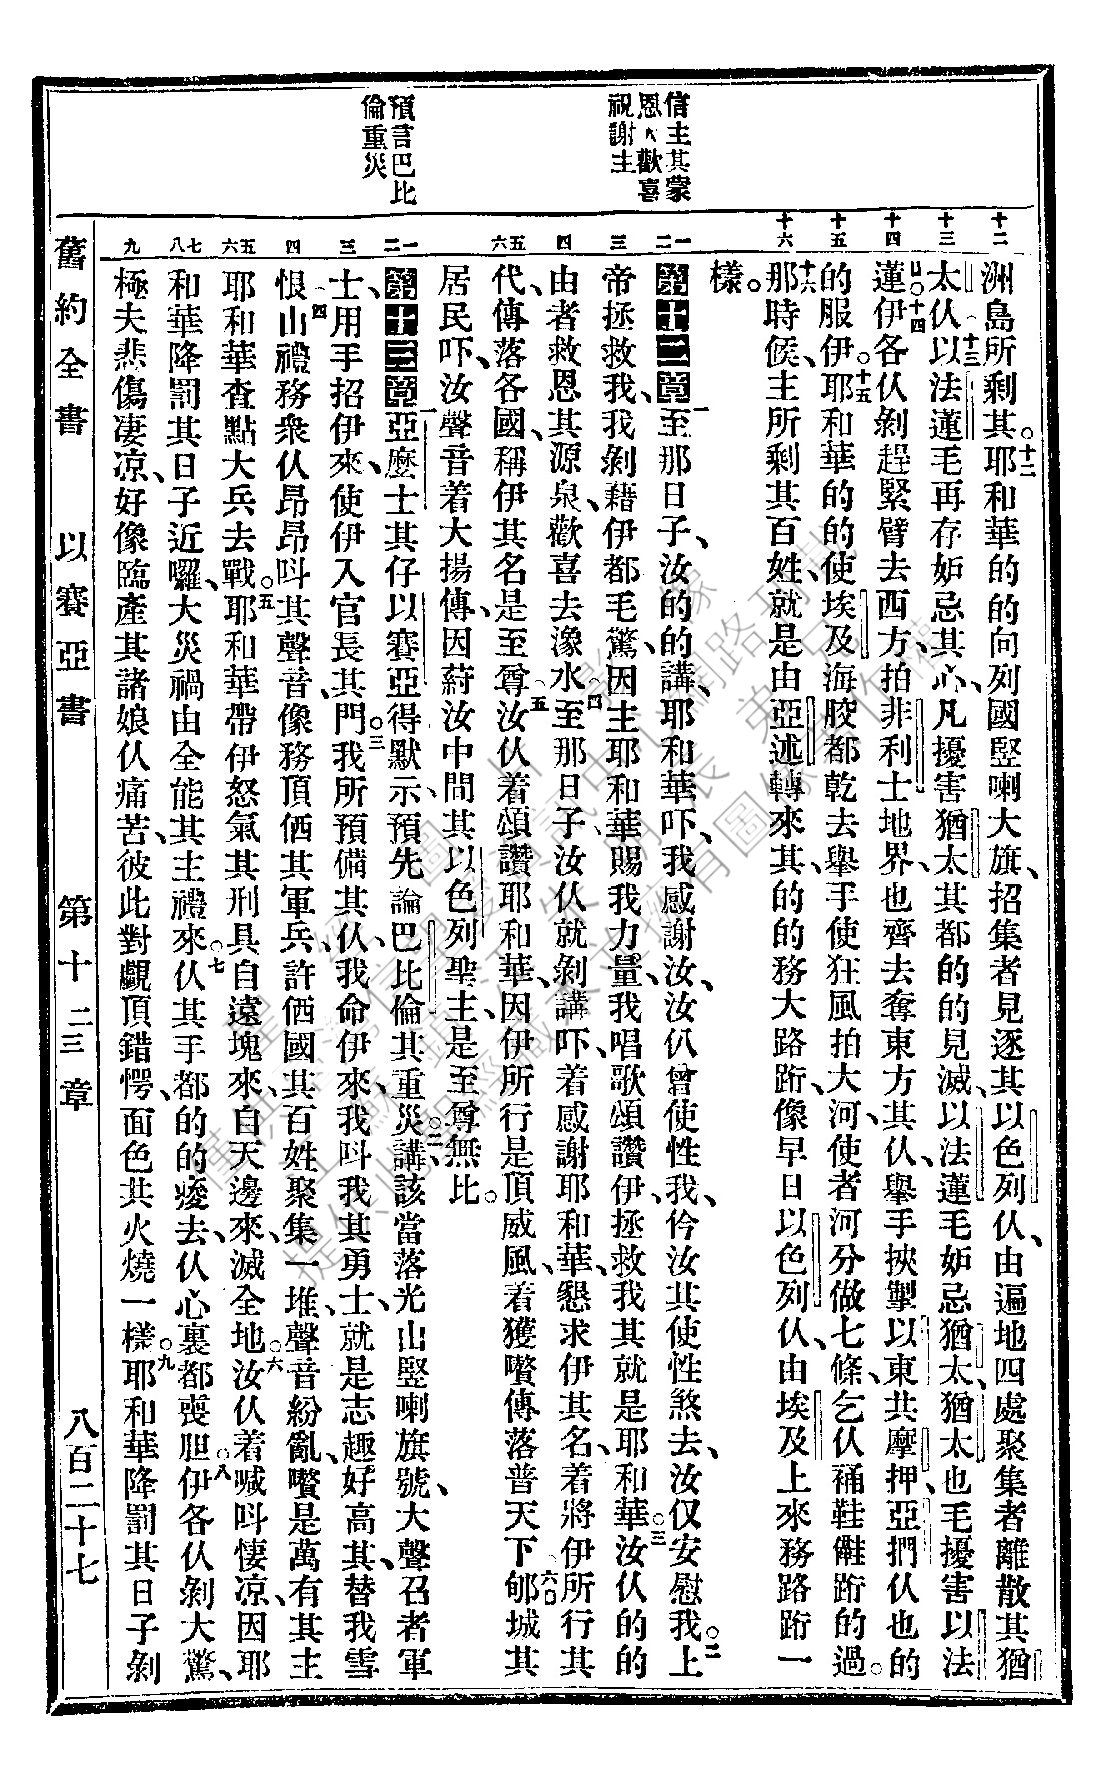 信主其蒙
恩〻歡喜
祝謝主
預言巴比
倫重災
十二
十三
十四
十五
十六
一二
三
四
五六
一二
三
四
五六
七八
九
洲島所剩其。十二耶和華的的向列國竪喇大旗、招集者見逐其以色列仈、由遍地四處聚集者離散其猶
太仈。十三以法蓮毛再存妒忌其心、凡擾害猶太其都的的見滅、以法蓮毛妒忌猶太、猶太也毛擾害以法
蓮。十四伊各仈剝趕緊臂去西方、拍非利士地界、也齊去奪東方其仈、舉手挾掣以東共摩押、亞捫仈也的
的服伊。十五耶和華的的使埃及海股都乾去、舉手使狂風拍大河、使者河分做七條、乞仈補鞋䠡跨的過。
十六那時候、主所剩其百姓、就是由亞述轉來其、的的務大路跨、像早日以色列仈、由埃及上來務路跨一
樣。
第十二章 一至那日子、汝的的講、耶和華吓、我感謝汝、汝仈曾使性我、仱汝其使性煞去、汝仅安慰我。二上
帝拯救我、我剝藉伊都毛驚、因主耶和華賜我力量、我唱歌頌讚伊、拯救我其就是耶和華。三汝仈的的
由者救恩其源泉、歡喜去潒水。四至那日子汝仈就剝講吓、着感謝耶和華、懇求伊其名、着將伊所行其
代、傳落各國、稱伊其名是至尊。五汝仈着頌讚耶和華、因伊所行是頂威風、着獲嚽傳落普天下。六郇城其
居民吓、汝聲音着大揚傳、因葤汝中間其以色列聖主、是至尊無比。
第十三章 一亞麼士其仔以賽亞得默示、預先論巴比倫其重災。二講、該當落光山竪喇旗號、大聲召者軍
士、用手招伊來、使伊入官長其門。三我所預備其仈、我命伊來、我叫我其勇士、就是志趣好高其、替我雪
恨。四山禮務衆仈昂昂叫其聲音、像務頂価其軍兵、許価國其百姓聚集一堆、聲音紛亂、嚽是萬有其主
耶和華查點大兵去戰。五耶和華帶伊怒氣其刑具、自遠塊來、自天邊來、滅全地。六汝仈着喊叫悽凉、因耶
和華降罰其日子近囉、大災禍由全能其主禮來。七仈其手都的的痠去、仈心裏都喪胆。八伊各仈剝大驚、
極夫悲傷凄凉、好像臨產其諸娘仈痛苦、彼此對覷頂錯愕、面色共火燒一樣。九耶和華降罰其日子剝
舊約全書 以賽亞書 第十二三章 八百二十七